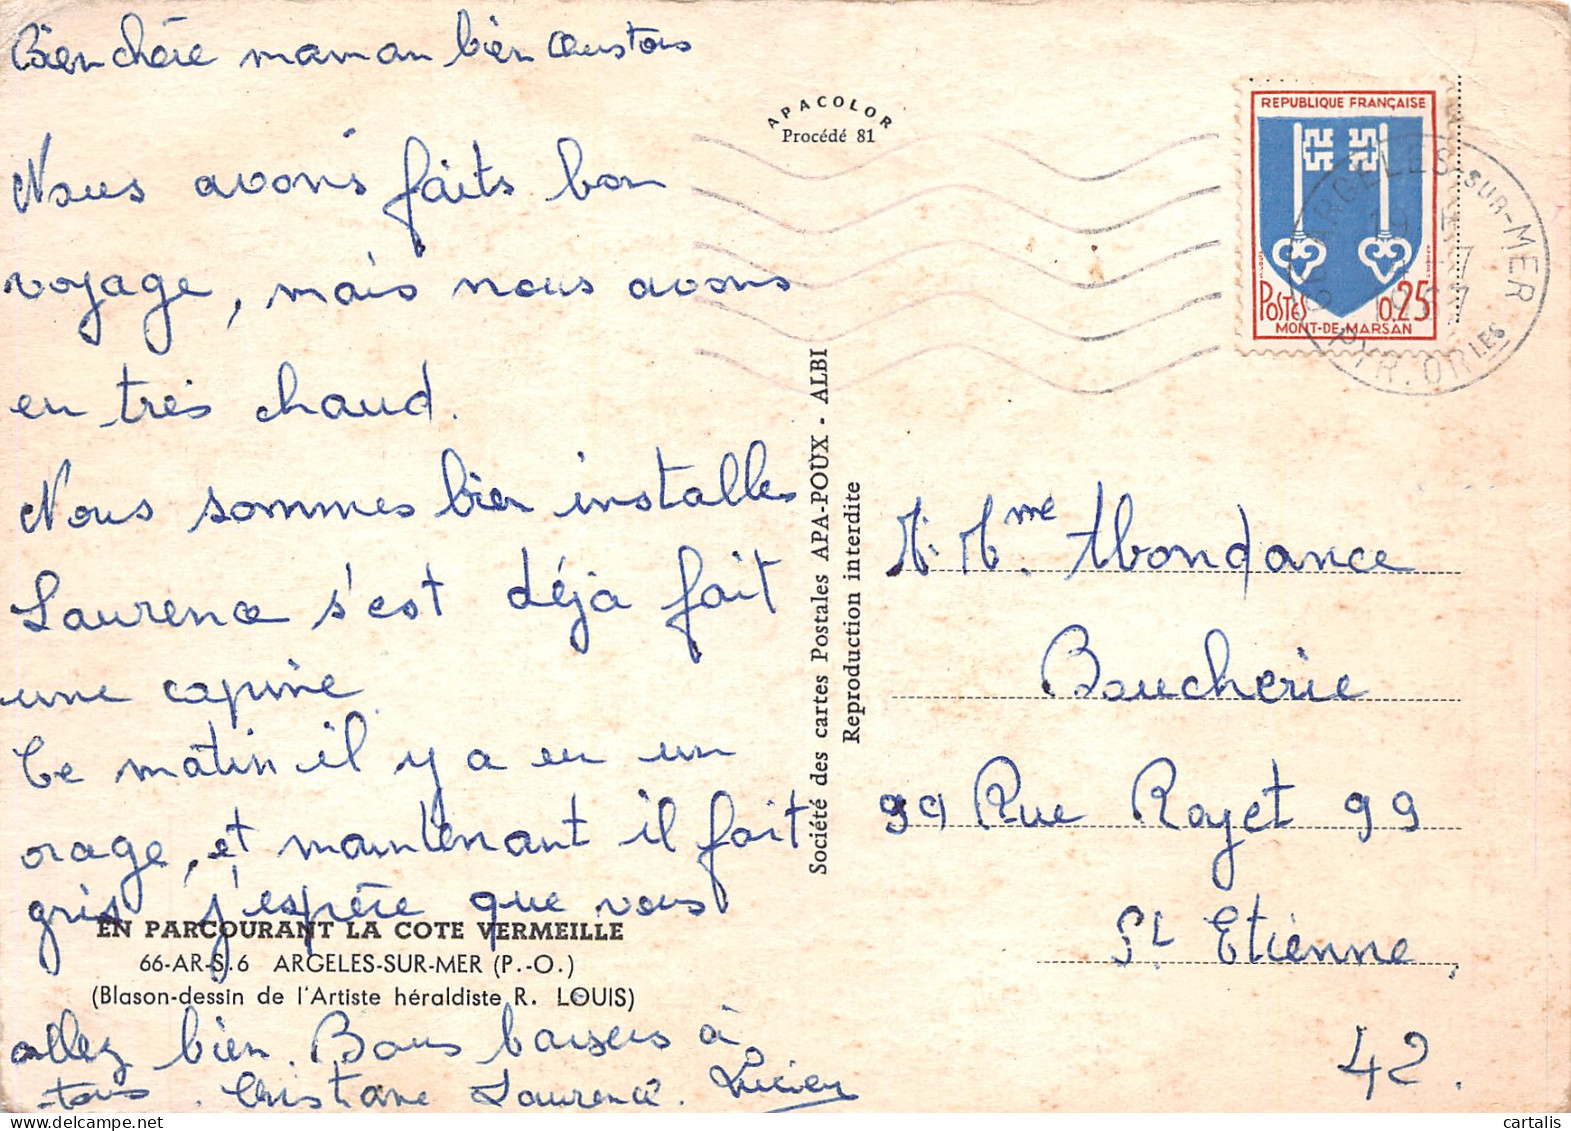 Bien chère maman bien
Nous avons faits bon
voyage, mais nous avons
eu très chaud.
Nous sommes bien installes
Laurence s'est déjà fait
une copine.
Ce matin il y a eu un
orage, et maintenant il fait
gris j'espère que vous
EN PARCOURANT LA COTE VERMEILLE
66-AR-S.6 ARGELES-SUR-MER (P.-O.)
(Blason-dessin de l'Artiste héraldiste R. LOUIS)
allez bien. Bons baisers à
tous. Christiane Laurence. Lucien
APACOLOR
Procédé 81
Société des cartes Postales APA-POUX - ALBI
Reproduction interdite
REPUBLIQUE FRANÇAISE
POSTES 0.25
MONT-DE-MARSAN
ARGELES-SUR-MER
PYR. OR LES
M. Mme. Abondance
Boucherie
99 Rue Royet 99
St Etienne
42.
cartalis
delcampe.net